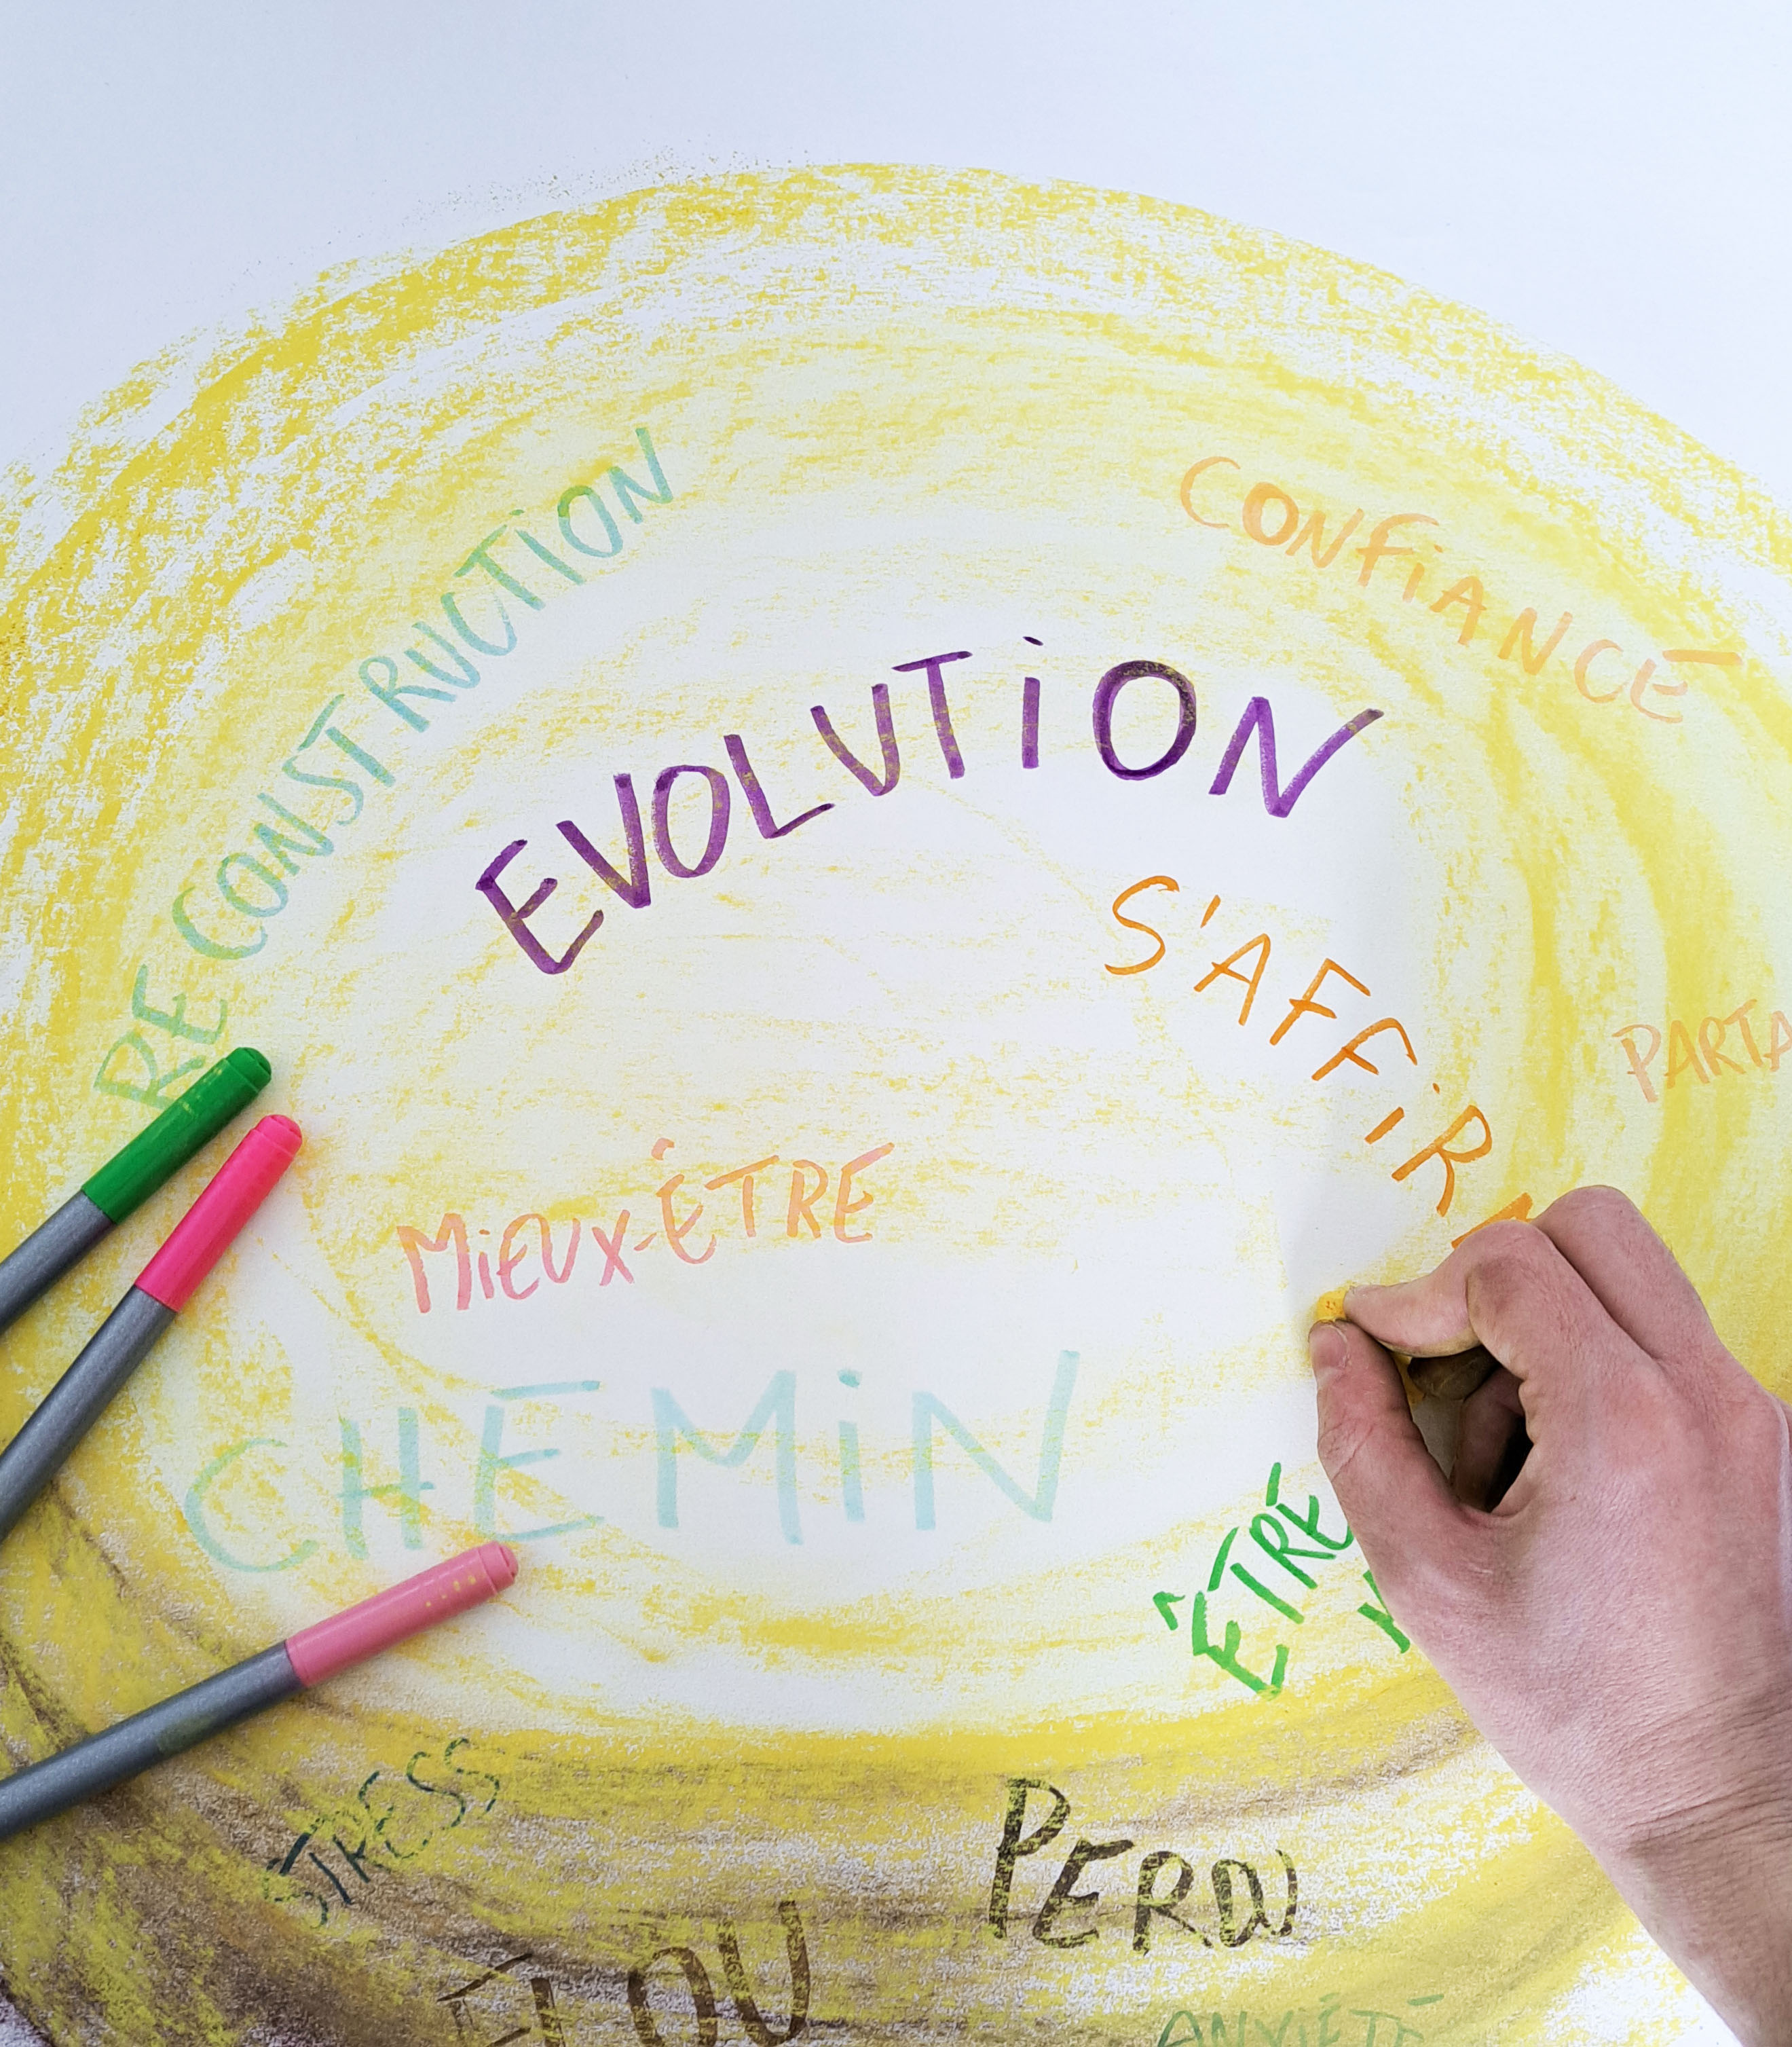 RECONSTRUCTION
CONFIANCE
EVOLUTION
S'AFFIR
PARTA
MIEUX-ÊTRE
CHEMIN
ÊTRE
STRESS
PERDU
FLOU
ANXIÉTÉ